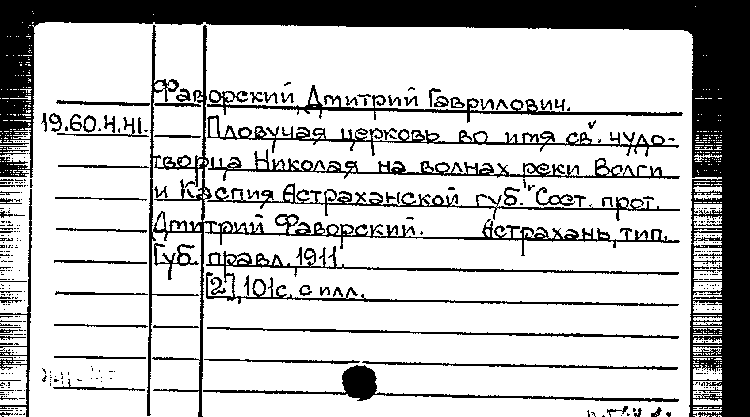 Фаворский Дмитрий Гаврилович.
19.60.4.41. Пловучая церковь во имя св. чудо-
творца Николая на волнах реки Волги
и Каспия Астраханской губ. Сост. прот.
Дмитрий Фаворский. Астрахань, тип.
Губ. правл., 1911.
[2], 101с. с илл.